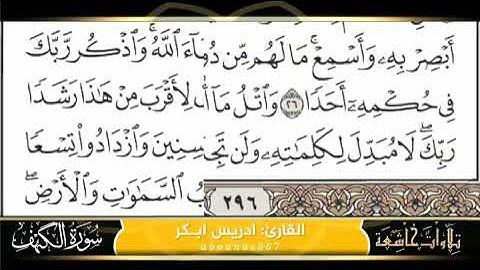 أَبْصِرْ بِهِۦ وَأَسْمِعْ ۚ مَا لَهُم مِّن ٱللَّهُ ۚ وَٱذْكُر رَّبَّكَ
فِى حُكْمِهِۦٓ أَحَدًا ٢٦ وَٱتْلُ مَآ أُ لِأَقْرَبَ مِنْ هَٰذَا رَشَدًا
رَبِّكَ ۖ لَا مُبَدِّلَ لِكَلِمَٰتِهِۦ وَلَن تَجِ سِنِينَ وَٱزْدَادُوا۟ تِسْعًا
٢٩٦ بُ ٱلسَّمَٰوَٰتِ وَٱلْأَرْضِ ۖ
سورة الكهف
القارئ: ادريس ابكر
تلاوات خاشعة